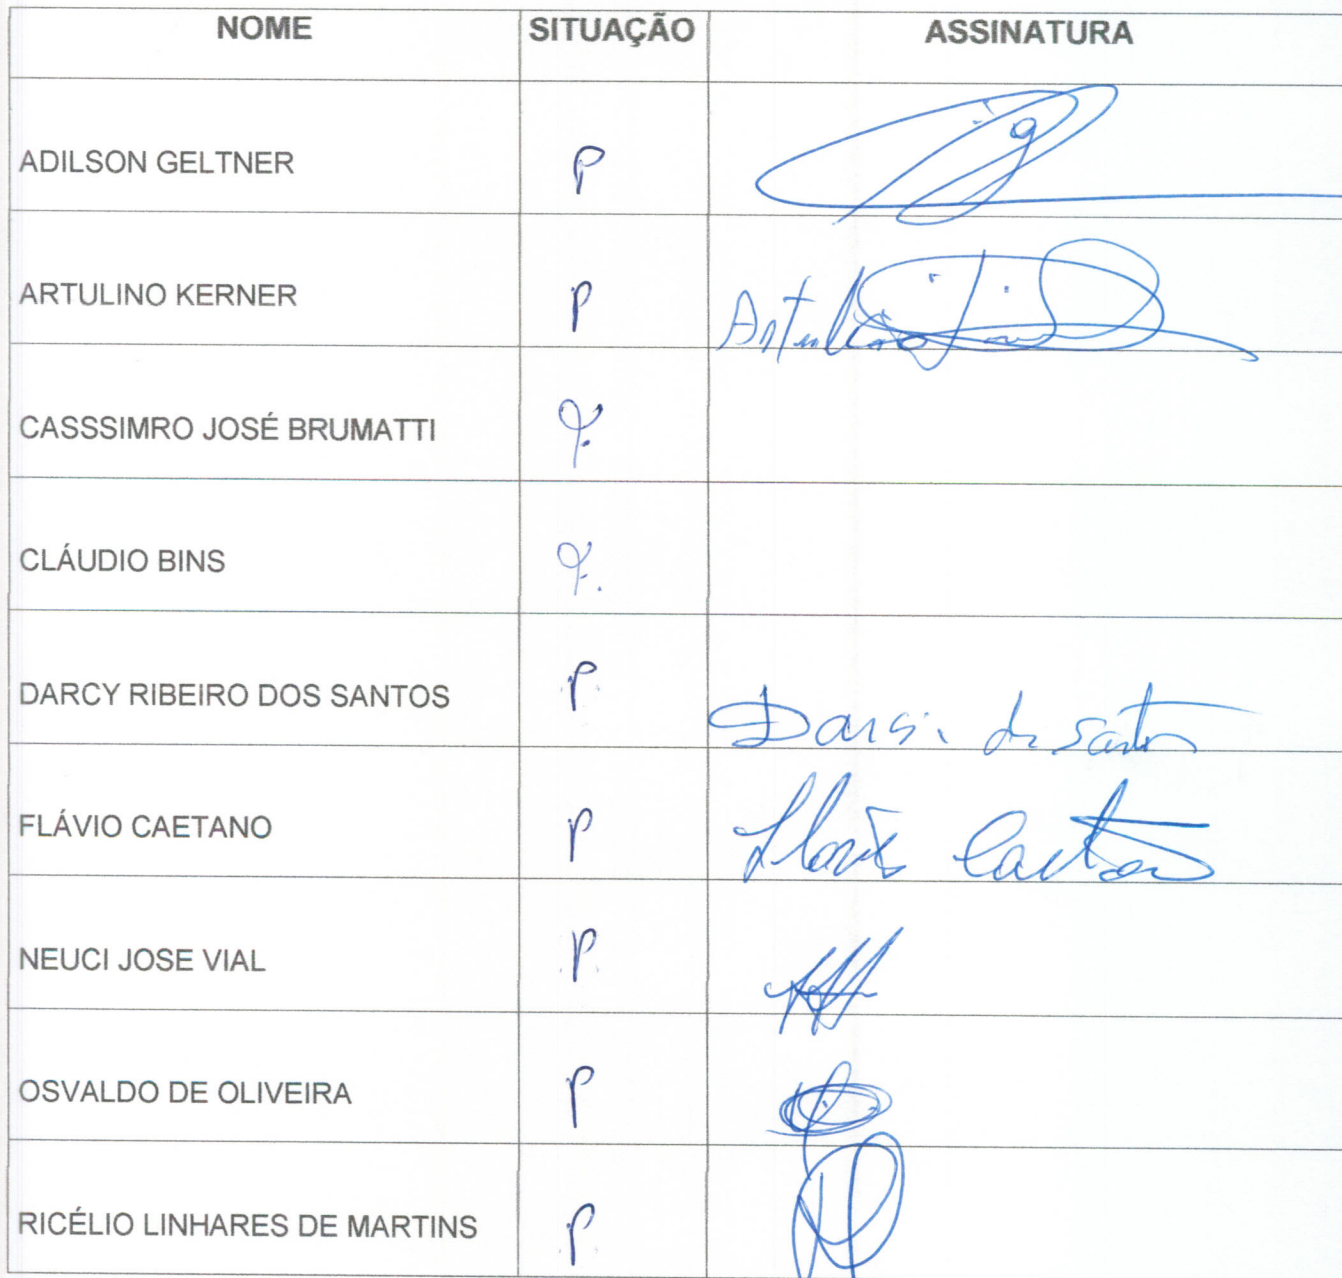 NOME SITUAÇÃO ASSINATURA
ADILSON GELTNER P
ARTULINO KERNER P Artulino
CASSSIMRO JOSÉ BRUMATTI F.
CLÁUDIO BINS F.
DARCY RIBEIRO DOS SANTOS P Darci dos Santos
FLÁVIO CAETANO P Flavio Caetano
NEUCI JOSE VIAL P
OSVALDO DE OLIVEIRA P
RICÉLIO LINHARES DE MARTINS P